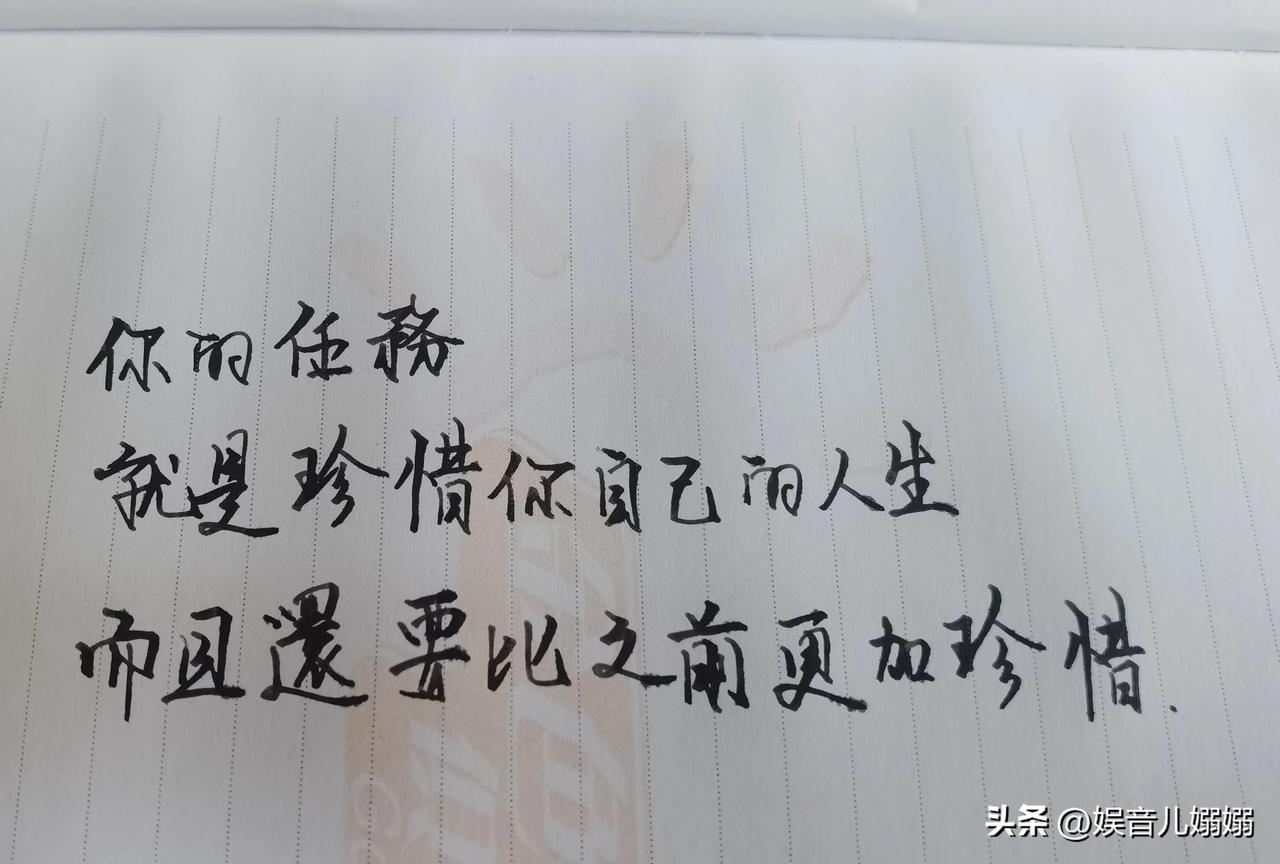 你的任務
就是珍惜你自己的人生
而且還要比之前更加珍惜.
头条 @娱音儿嫋嫋